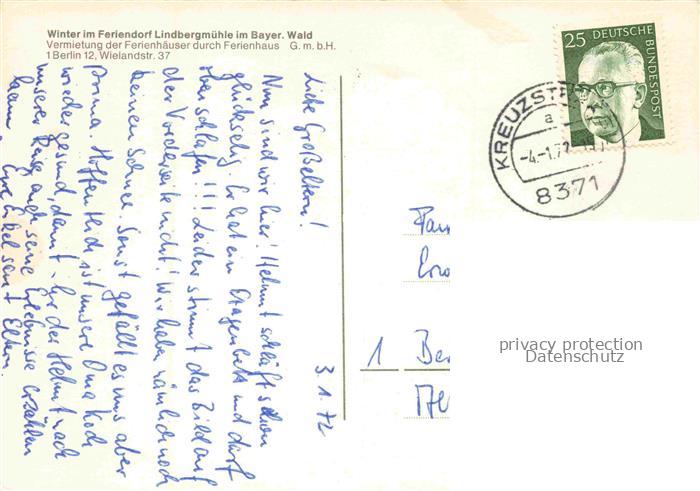 Winter im Feriendorf Lindbergmühle im Bayer. Wald
Vermietung der Ferienhäuser durch Ferienhaus G.m.b.H.
1 Berlin 12, Wielandstr. 37
3.1.72
Liebe Großeltern!
Nun sind wir hier! Helmut schläft schon
glückselig. Er hat ein Etagenbett und darf
oben schlafen!!! Leider stimmt das Bild auf
der Vorderseite nicht! Wir haben nämlich noch
keinen Schnee. Sonst gefällt es uns aber
prima. Hoffentlich ist unsere Oma Koch
wieder gesund, damit ihr der Helmut nach
unserer Reise auch seine Erlebnisse erzählen
kann. Helmut Eltern.
25 DEUTSCHE
BUNDESPOST
KREUZSTR
a
-4.-1.72
8371
Fam
1 Ber
privacy protection
Datenschutz